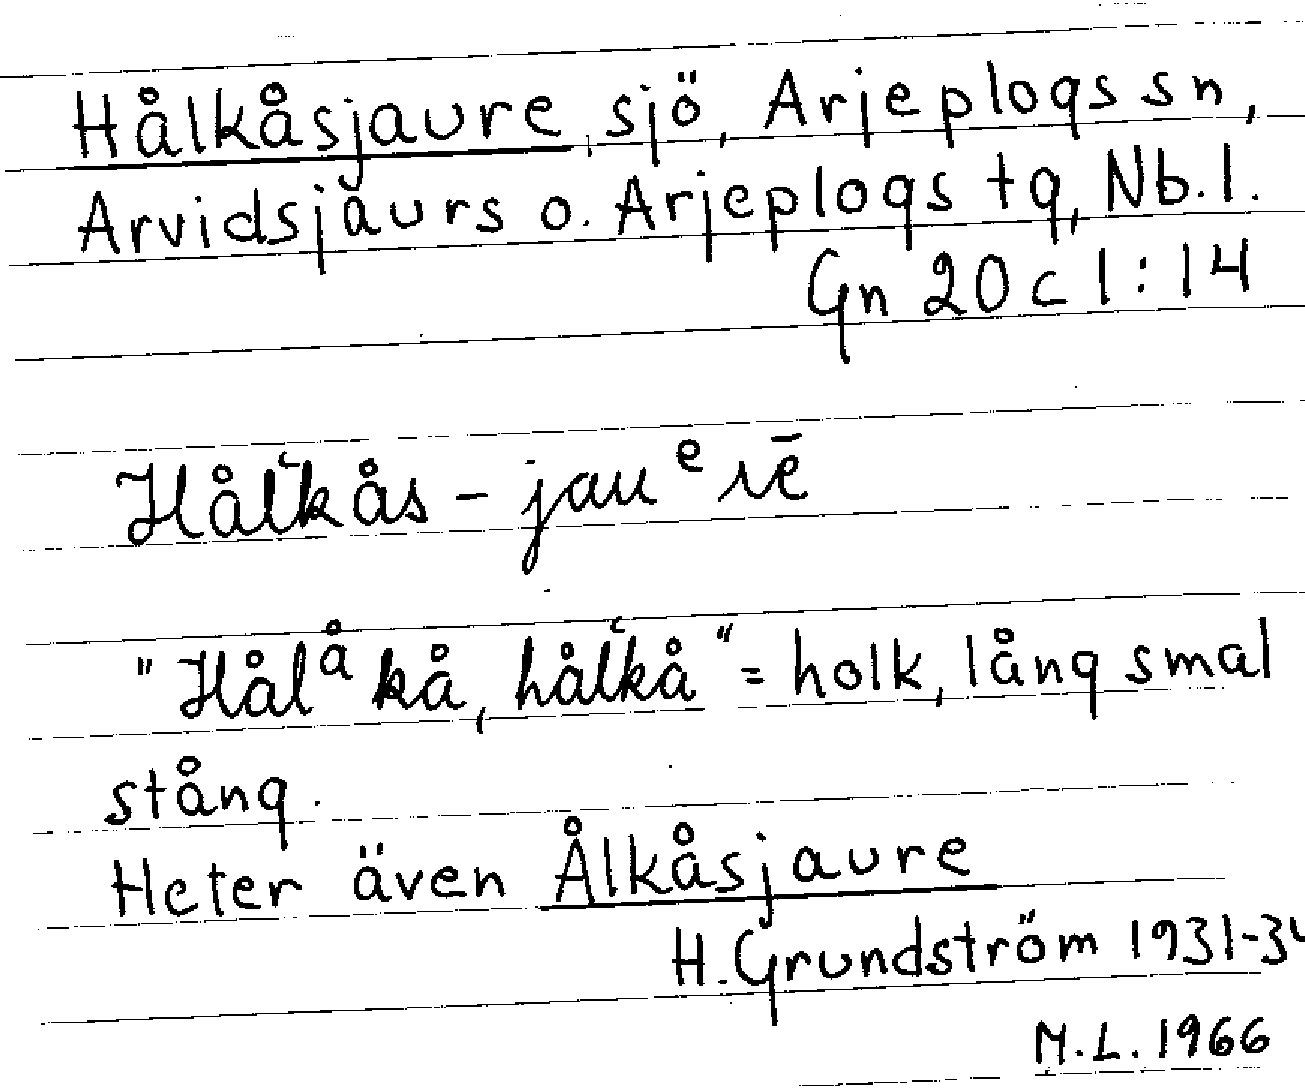 Hålkåsjaure, sjö, Arjeplogs sn,
Arvidsjaurs o. Arjeplogs tg, Nb.l.
Gn 20 c 1:14
Hålʿkås - jauᵉrē
"Hålᵃ̊kå, hålʿkå" = holk, lång smal
stång.
Heter även Ålkåsjaure
H. Grundström 1931-34
M.L. 1966